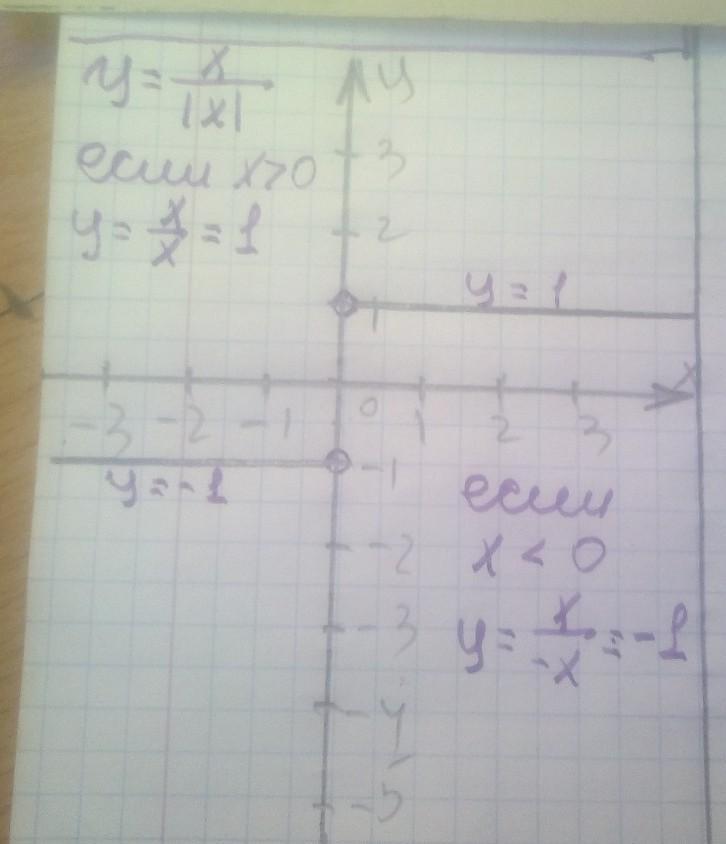 y = x/|x|
если x>0
y = x/x = 1
y
3
2
1
y = 1
x
-3 -2 -1 0 1 2 3
y = -1
-1
-2
-3
-4
-5
если
x < 0
y = x/-x = -1